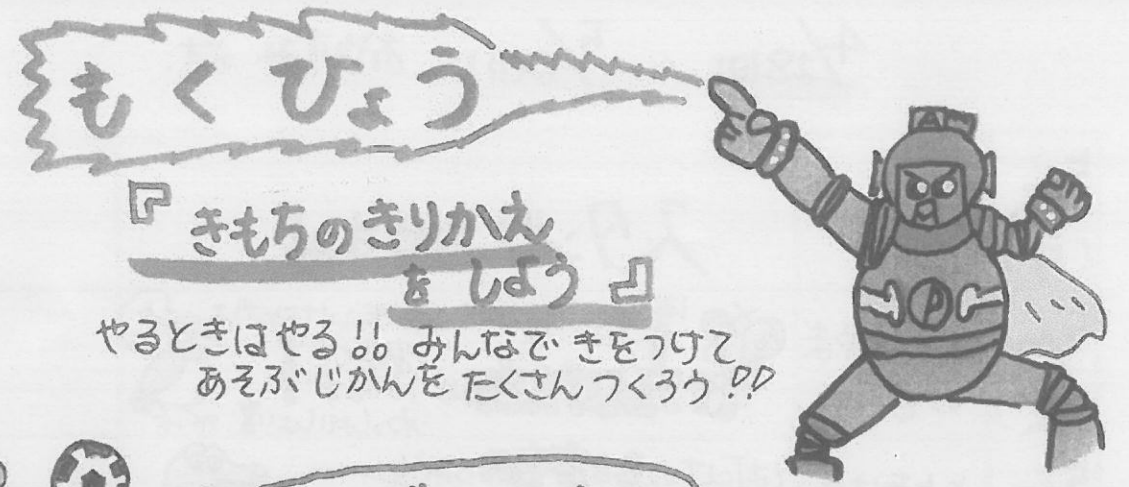 もくひょう
『きもちのきりかえ
をしよう』
やるときはやる!! みんなで きをつけて
あそぶじかんを たくさん つくろう!!
P